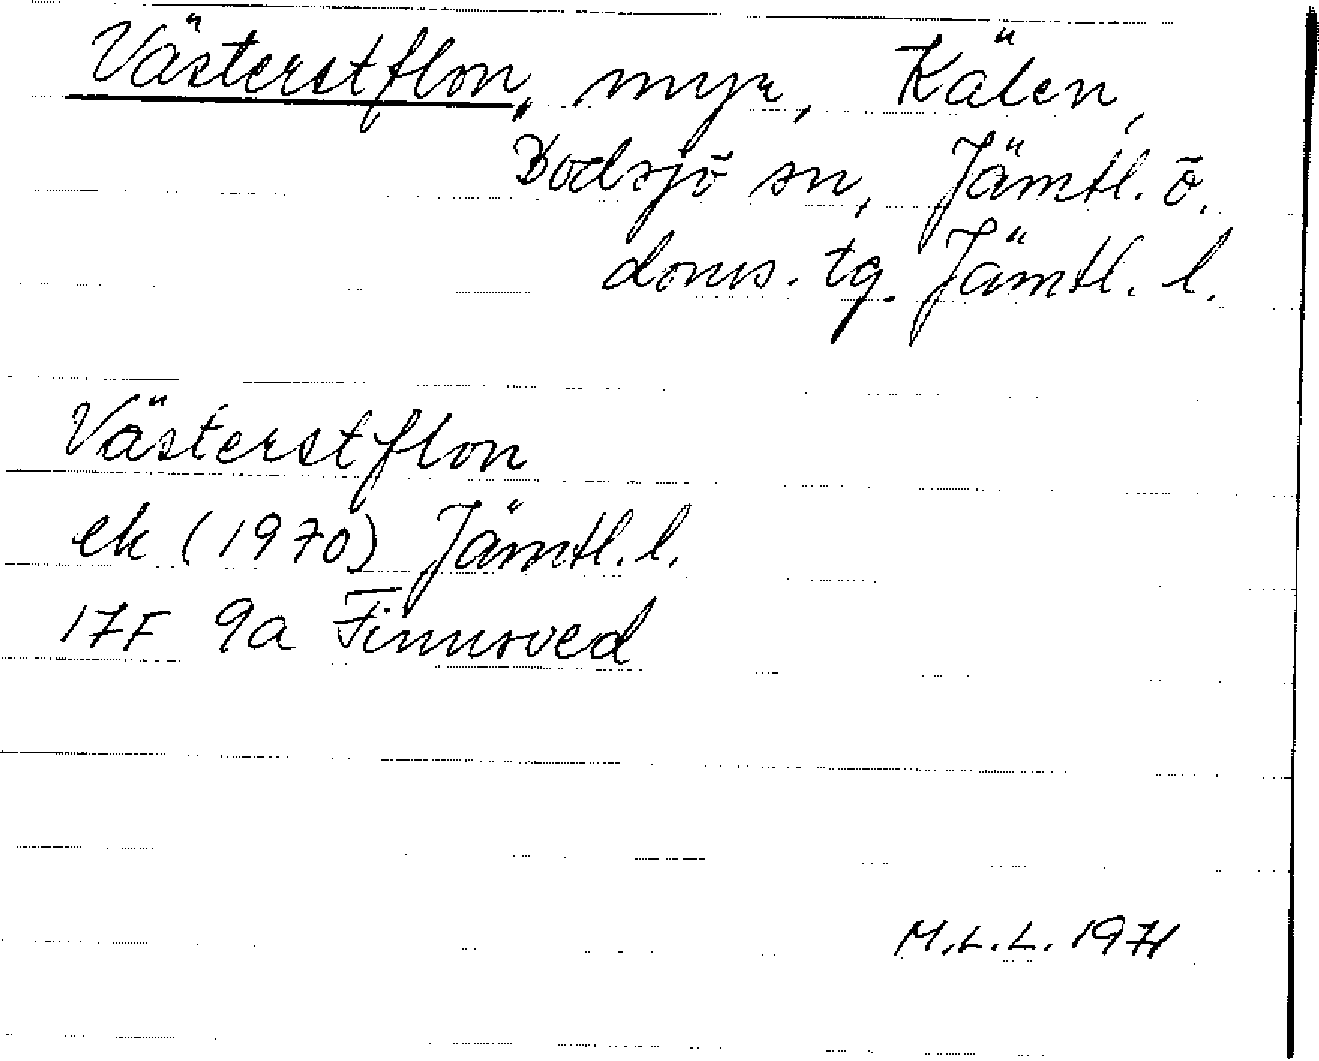 Västerstflon, myr, Kälen,
Bodsjö sn, Jämtl. ö.
doms. tg. Jämtl. l.
Västerstflon
ek (1970) Jämtl. l.
17F 9a Finnsved
M.L.L. 1971